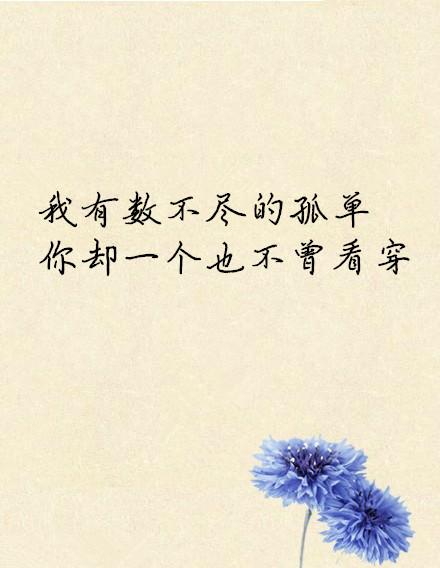 我有数不尽的孤单
你却一个也不曾看穿